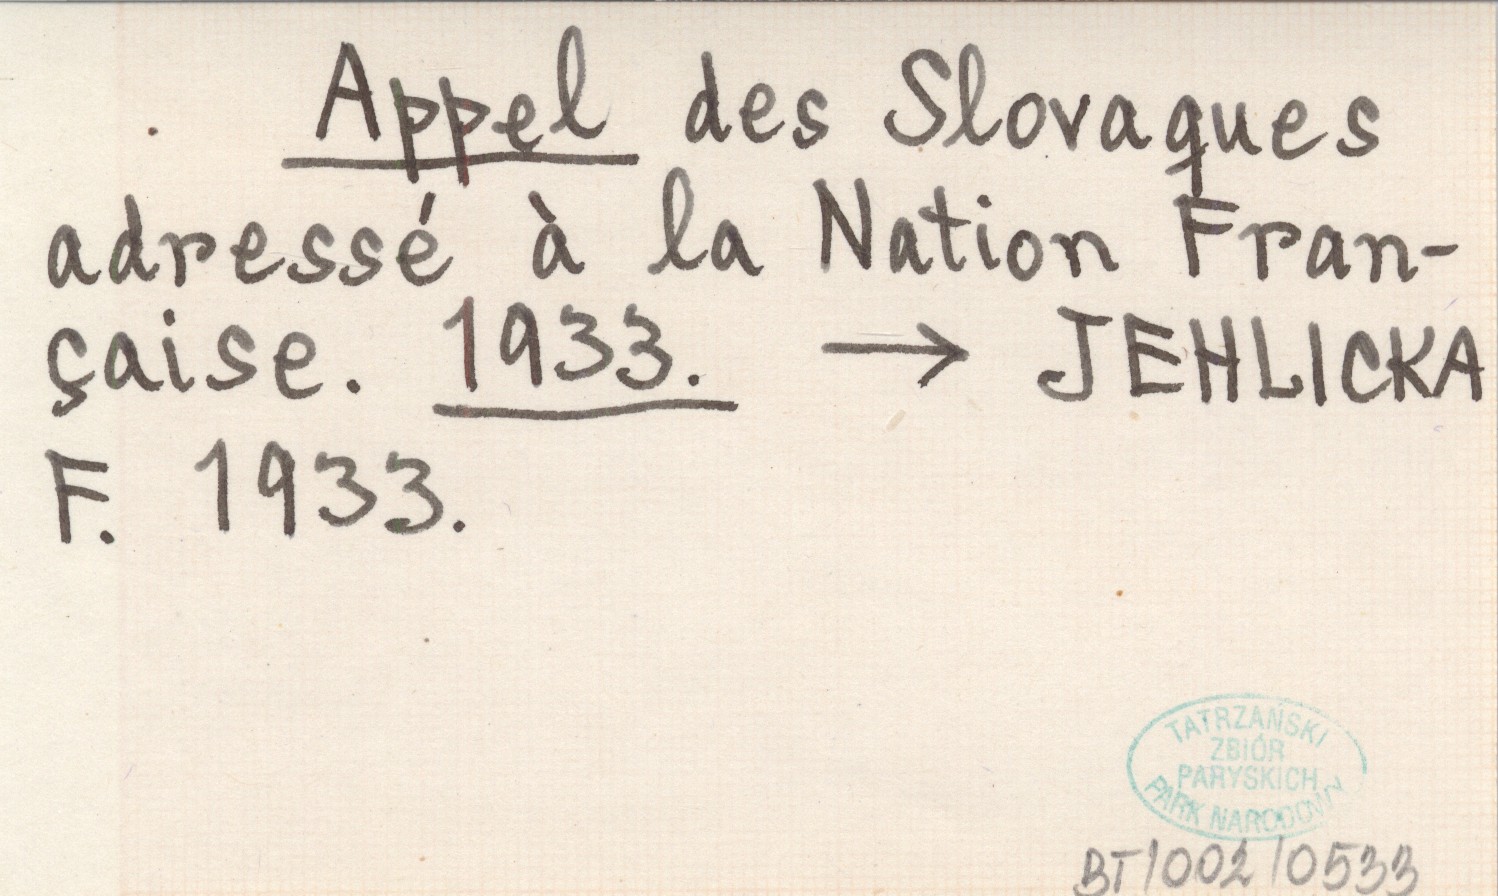 Appel des Slovaques
adressé à la Nation Fran-
çaise. 1933. → JEHLICKA
F. 1933.
TATRZAŃSKI
ZBIÓR
PARYSKICH
PARK NARODOWY
BT/002/0533